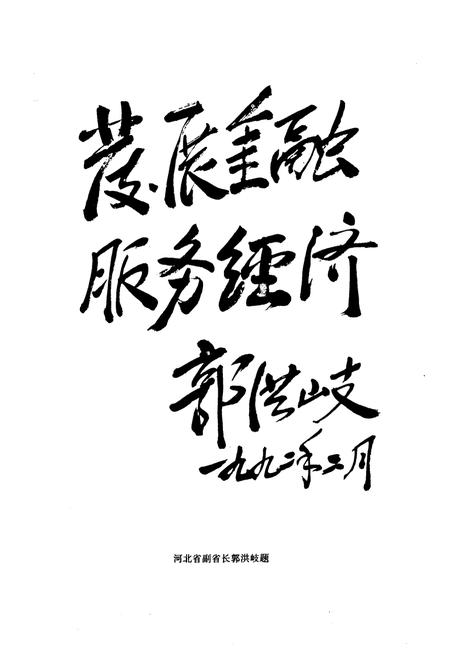 發展金融
服务經济
郭洪岐
一九九二年二月
河北省副省长郭洪岐题